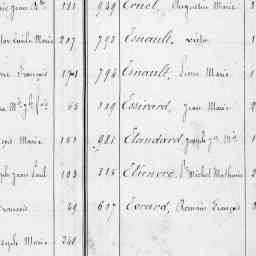 Jean Bte 181 949 Ernel, Augustin Marie
Emile Marie 207 793 Esnault, Victor
François 171 794 Esnault, Pierre Marie
65 139 Essirard, Jean Marie
Marie 151 981 Etandard, Joseph
Jean Paul 103 315 Etienvre, Michel Mathurin
François 49 607 Evrard, Romain François
Joseph Marie 240